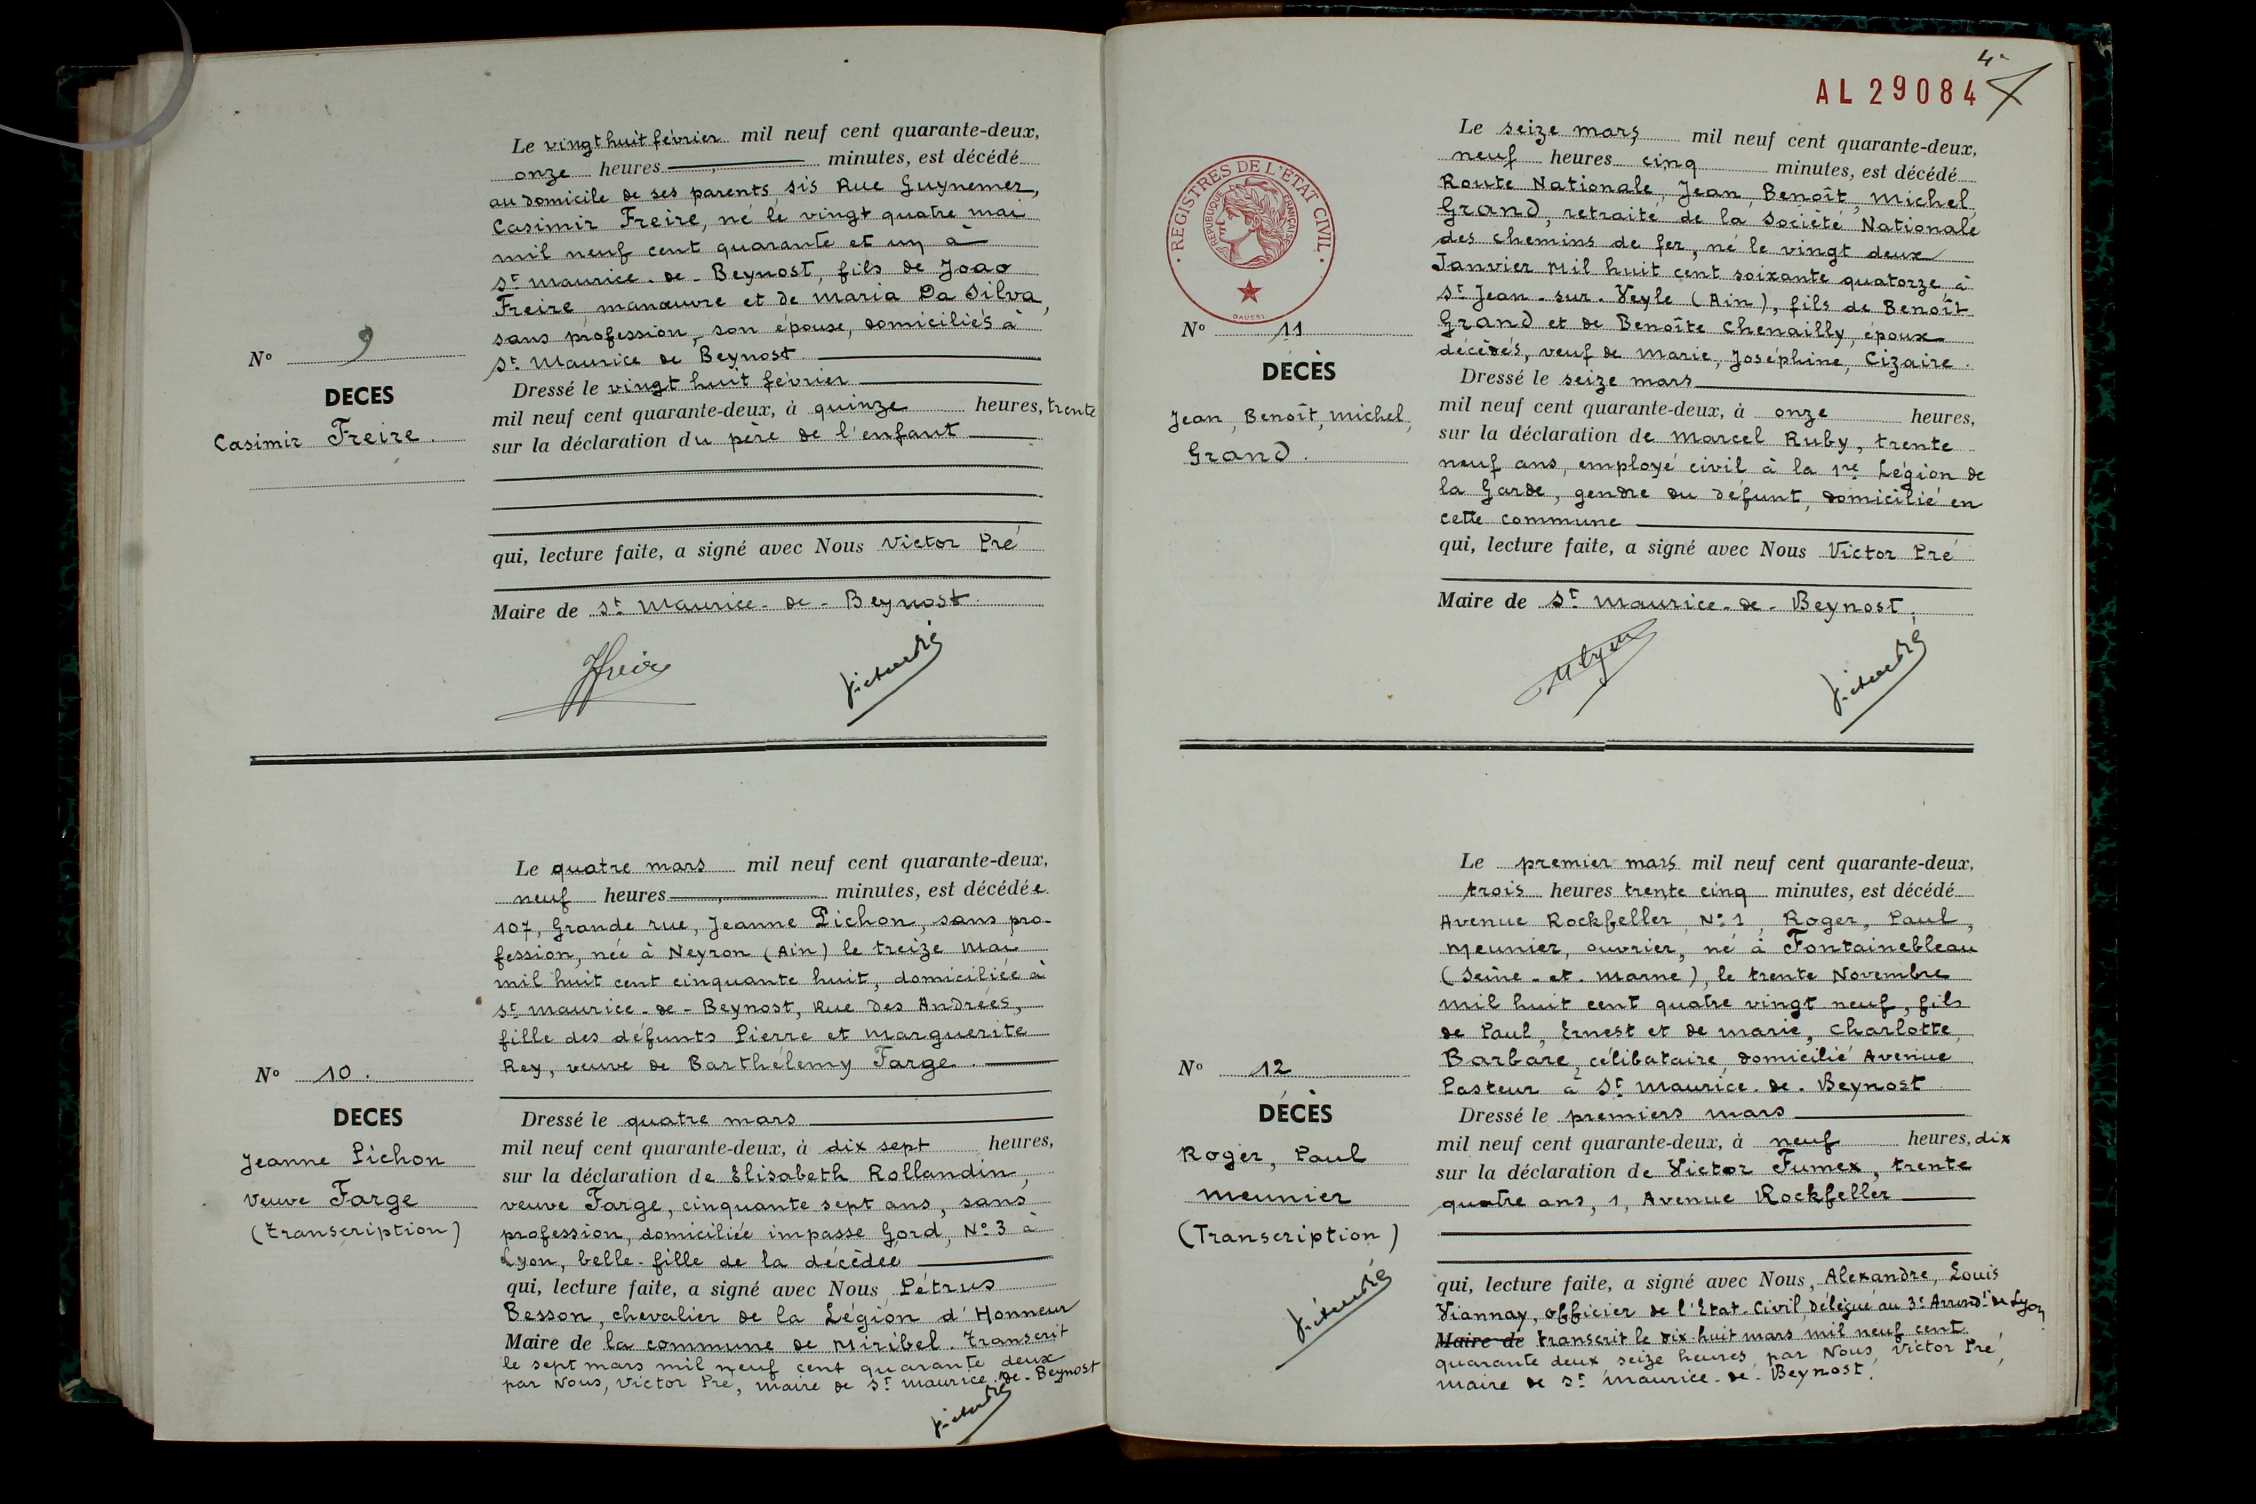 Le vingt huit février mil neuf cent quarante-deux,
onze heures minutes, est décédé
au domicile de ses parents sis Rue Guynemer,
Casimir Freire, né le vingt quatre mai
mil neuf cent quarante et un à
St Maurice-de-Beynost, fils de Joao
Freire manœuvre et de Maria Da Silva,
sans profession, son épouse, domiciliés à
St Maurice de Beynost
Dressé le vingt huit février
mil neuf cent quarante-deux, à quinze heures, trente
sur la déclaration du père de l'enfant
qui, lecture faite, a signé avec Nous Victor Pré
Maire de St Maurice-de-Beynost
No 9
DECES
Casimir Freire.
JFreire
Victor Pré
Le quatre mars mil neuf cent quarante-deux,
neuf heures minutes, est décédée
107, Grande rue, Jeanne Pichon, sans pro-
fession, née à Neyron (Ain) le treize Mai
mil huit cent cinquante huit, domiciliée à
St Maurice-de-Beynost, Rue des Andrées,
fille des défunts Pierre et Marguerite
Rey, veuve de Barthélemy Farge.
Dressé le quatre mars
mil neuf cent quarante-deux, à dix sept heures,
sur la déclaration de Elisabeth Rollandin,
veuve Farge, cinquante sept ans, sans
profession, domiciliée impasse Gord, No 3 à
Lyon, belle-fille de la décédée
qui, lecture faite, a signé avec Nous Pétrus
Besson, chevalier de la Légion d'Honneur
Maire de la commune de Miribel. Transcrit
le sept mars mil neuf cent quarante deux
par Nous, Victor Pré, maire de St Maurice-de-Beynost
Victor Pré
No 10.
DECES
Jeanne Pichon
Veuve Farge
(transcription)
4
AL 29084
REGISTRES DE L'ETAT CIVIL
REPUBLIQUE FRANÇAISE
Le seize mars mil neuf cent quarante-deux,
neuf heures cinq minutes, est décédé
Route Nationale, Jean, Benoît, Michel
Grand, retraité de la Société Nationale
des chemins de fer, né le vingt deux
Janvier Mil huit cent soixante quatorze à
St Jean-sur-Veyle (Ain), fils de Benoît
Grand et de Benoîte Chenailly, époux
décédés, veuf de Marie, Joséphine, Cizaire.
Dressé le seize mars
mil neuf cent quarante-deux, à onze heures,
sur la déclaration de Marcel Ruby, trente
neuf ans, employé civil à la 1re Légion de
la Garde, gendre du défunt, domicilié en
cette commune
qui, lecture faite, a signé avec Nous Victor Pré
Maire de St Maurice-de-Beynost.
No 11
DÉCÈS
Jean, Benoît, Michel,
Grand.
Victor Pré
Le premier mars mil neuf cent quarante-deux,
trois heures trente cinq minutes, est décédé
Avenue Rockfeller, No 1, Roger, Paul,
Meunier, ouvrier, né à Fontainebleau
(Seine-et-Marne), le trente Novembre
mil huit cent quatre vingt neuf, fils
de Paul, Ernest et de Marie, Charlotte
Barbare, célibataire, domicilié Avenue
Pasteur à St Maurice-de-Beynost
Dressé le premiers mars
mil neuf cent quarante-deux, à neuf heures, dix
sur la déclaration de Victor Fumex, trente
quatre ans, 1, Avenue Rockfeller
qui, lecture faite, a signé avec Nous, Alexandre, Louis
Viannay, officier de l'Etat-Civil délégué au 3e Arrondt de Lyon
Maire de transcrit le dix-huit mars mil neuf cent
quarante deux seize heures, par Nous, Victor Pré,
maire de St Maurice-de-Beynost.
No 12
DÉCÈS
Roger, Paul
Meunier
(Transcription)
Victor Pré